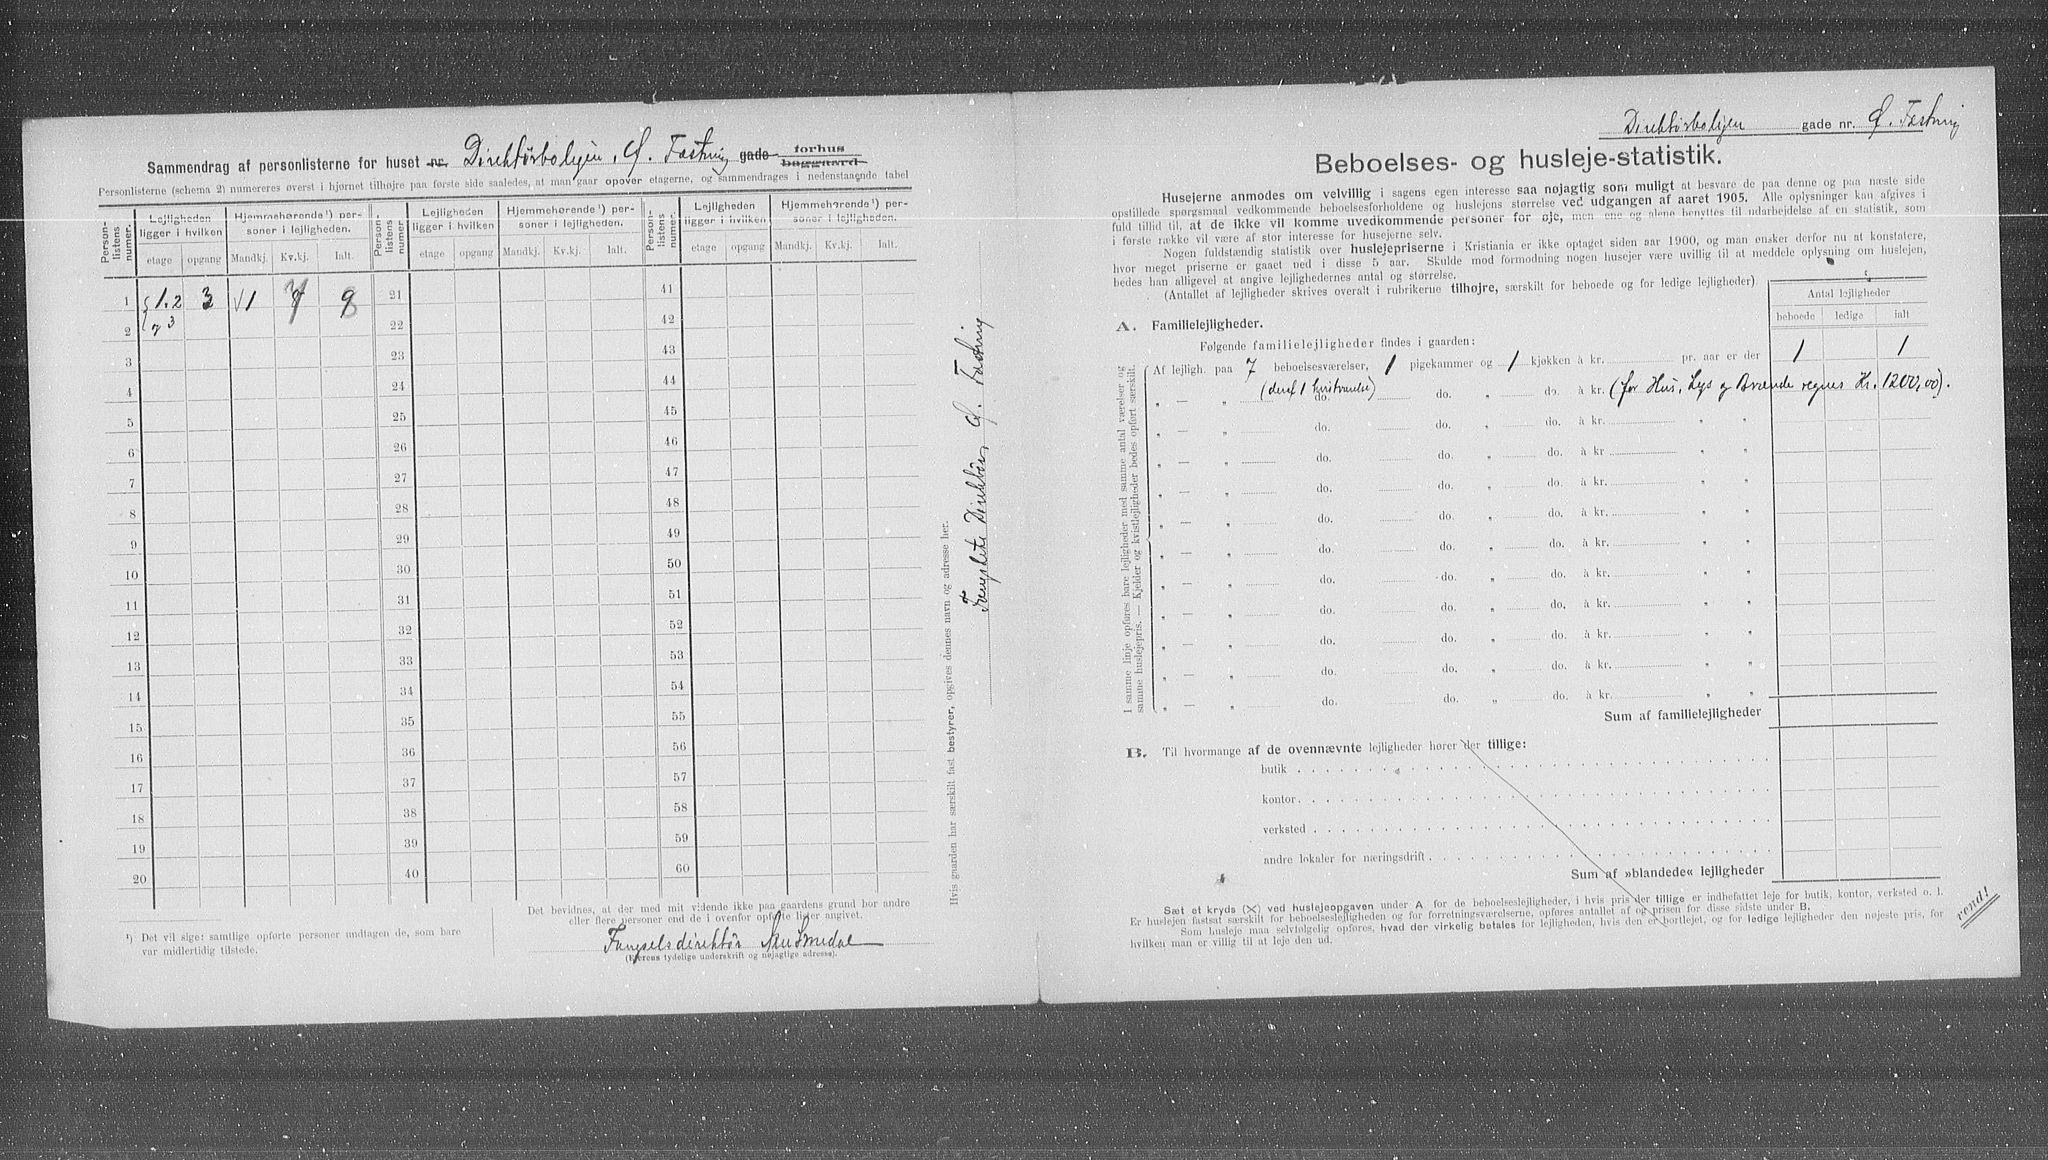 Sammendrag af personlisterne for huset nr. Direktørboligen, Ø. Fæstning gade forhus baggaard
Personlisterne (schema 2) numereres øverst i hjørnet tilhøjre paa første side saaledes, at man gaar opover etagerne, og sammendrages i nedenstaaende tabel
Person-listens numer.
Lejligheden ligger i hvilken
etage
opgang
Hjemmehørende¹) personer i lejligheden.
Mandkj.
Kv.kj.
Ialt.
Person-listens numer
Lejligheden ligger i hvilken
etage
opgang
Hjemmehørende¹) personer i lejligheden.
Mandkj.
Kv.kj.
Ialt.
Person-listens numer.
Lejligheden ligger i hvilken
etage
opgang
Hjemmehørende¹) personer i lejligheden.
Mandkj.
Kv.kj.
Ialt.
1 1. 2 3 1 21 41
2 3 22 42
3 23 43
4 24 44
5 25 45
6 26 46
7 27 47
8 28 48
9 29 49
10 30 50
11 31 51
12 32 52
13 33 53
14 34 54
15 35 55
16 36 56
17 37 57
18 38 58
19 39 59
20 40 60
¹) Det vil sige: samtlige opførte personer undtagen de, som bare
var midlertidig tilstede.
Det bevidnes, at der med mit vidende ikke paa gaardens grund bor andre
eller flere personer end de i ovenfor opførte lister angivet.
Fængselsdirektør Smedal
(Ejerens tydelige underskrift og nøjagtige adresse).
Hvis gaarden har særskilt fast bestyrer, opgives dennes navn og adresse her.
Fængslets Direktør, Ø. Fæstning
Direktørboligen gade nr. Ø. Fæstning
Beboelses- og husleje-statistik.
Husejerne anmodes om velvillig i sagens egen interesse saa nøjagtig som muligt at besvare de paa denne og paa næste side
opstillede spørgsmaal vedkommende beboelsesforholdene og huslejens størrelse ved udgangen af aaret 1905. Alle oplysninger kan afgives i
fuld tillid til, at de ikke vil komme uvedkommende personer for øje, men ene og alene benyttes til udarbejdelse af en statistik, som
i første række vil være af stor interesse for husejerne selv.
Nogen fuldstændig statistik over huslejepriserne i Kristiania er ikke optaget siden aar 1900, og man ønsker derfor nu at konstatere,
hvor meget priserne er gaaet ned i disse 5 aar. Skulde mod formodning nogen husejer være uvillig til at meddele oplysning om huslejen,
bedes han alligevel at angive lejlighedernes antal og størrelse.
(Antallet af lejligheder skrives overalt i rubrikerne tilhøjre, særskilt for beboede og for ledige lejligheder)
Antal lejligheder
beboede
ledige
ialt
A. Familielejligheder.
Følgende familielejligheder findes i gaarden:
Af lejligh. paa 7 beboelsesværelser, 1 pigekammer og 1 kjøkken à kr. pr. aar er der 1 1
„ — „ (deraf 1 kvistværelse) do. do. „ do. à kr. (for Hus, Lys og Brænde regnes Kr. 1200,00).
„ — „ do. do. „ do. à kr. „ „
„ — „ do. do. „ do. à kr „ „
„ — „ do. do. „ do. à kr. „ „
„ — „ do. do. „ do. à kr. „ „
„ — „ do. do. „ do. à kr. „ „
„ — „ do. do. „ do. à kr. „ „
„ — „ do. do. „ do. à kr. „ „
„ — „ do. do. „ do. à kr. „ „
„ — „ do. do. „ do. à kr. „ „
„ — „ do. do. „ do. à kr. „ „
I samme linje opføres bare lejligheder med samme antal værelser og
samme huslejepris. — Kjelder og kvistlejligheder bedes opført særskilt.
Sum af familielejligheder
B. Til hvormange af de ovennævnte lejligheder hører der tillige:
butik
kontor
verksted
andre lokaler for næringsdrift
Sum af »blandede« lejligheder
Sæt et kryds (×) ved huslejeopgaven under A for de beboelseslejligheder, i hvis pris der tillige er indbefattet leje for butik, kontor, verksted o. l.
Er huslejen fastsat særskilt for beboelseslejligheden og for forretningsværelserne, opføres antallet af og prisen for disse sidste under B.
Som husleje maa selvfølgelig opføres, hvad der virkelig betales for lejligheden, hvis den er bortlejet, og for ledige lejligheder den nøjeste pris, for
hvilken man er villig til at leje den ud.
vend!